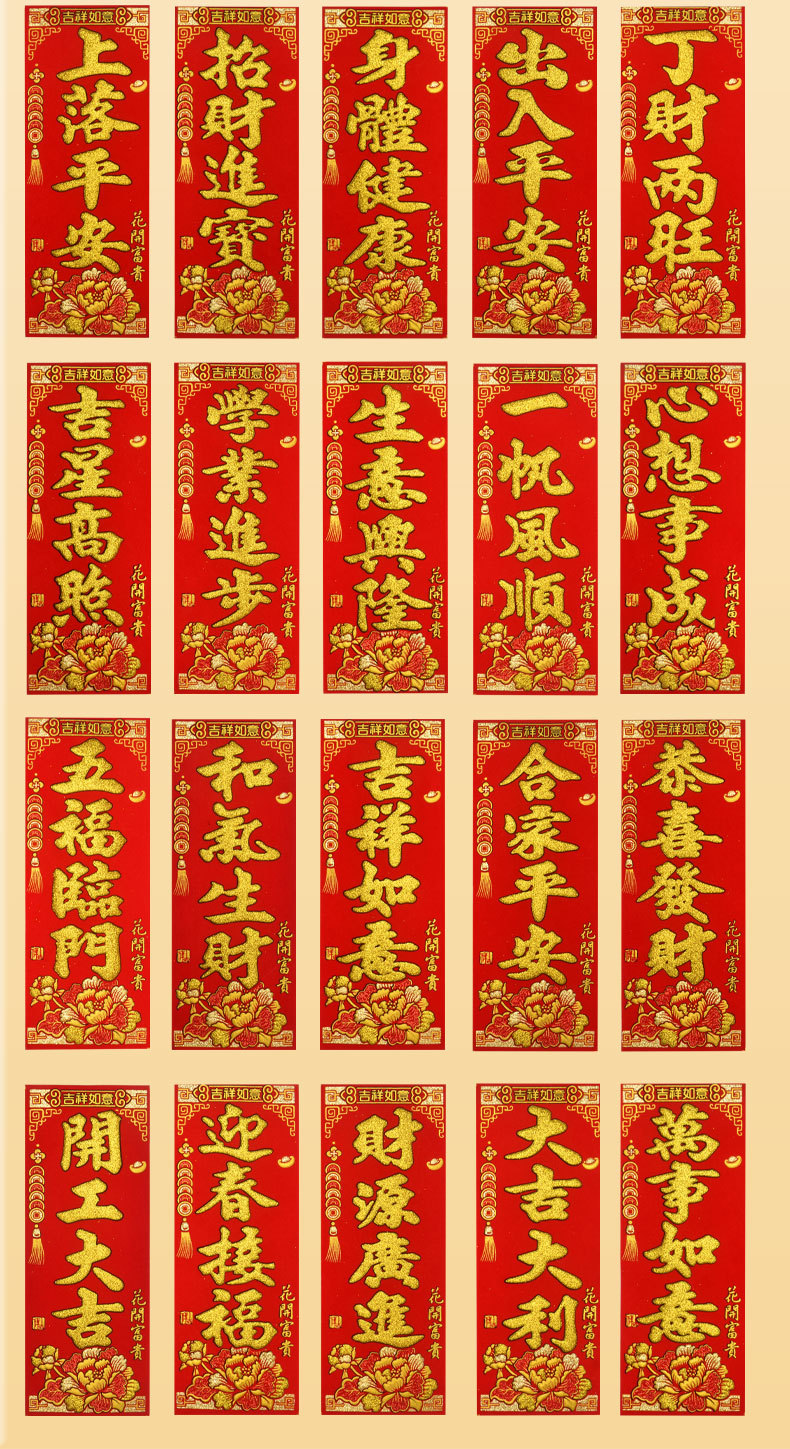 吉祥如意
上落平安
花開富貴
吉祥如意
招財進寶
花開富貴
吉祥如意
身體健康
花開富貴
吉祥如意
出入平安
花開富貴
吉祥如意
丁財两旺
花開富貴
吉祥如意
吉星高照
花開富貴
吉祥如意
學業進步
花開富貴
吉祥如意
生意興隆
花開富貴
吉祥如意
一帆風順
花開富貴
吉祥如意
心想事成
花開富貴
吉祥如意
五福臨門
花開富貴
吉祥如意
和氣生財
花開富貴
吉祥如意
吉祥如意
花開富貴
吉祥如意
合家平安
花開富貴
吉祥如意
恭喜發財
花開富貴
吉祥如意
開工大吉
花開富貴
吉祥如意
迎春接福
花開富貴
吉祥如意
財源廣進
花開富貴
吉祥如意
大吉大利
花開富貴
吉祥如意
萬事如意
花開富貴